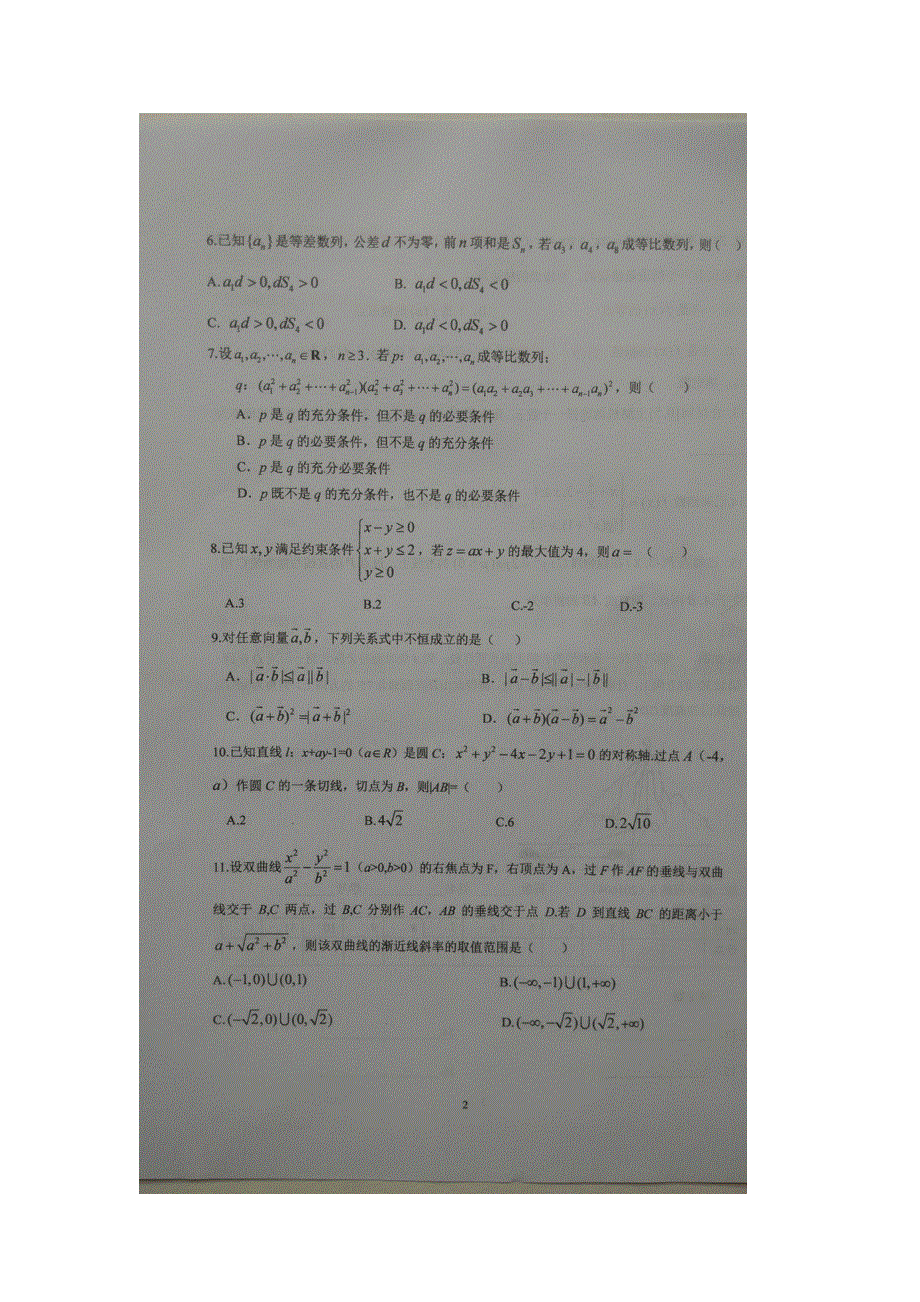 6.已知{aₙ}是等差数列，公差d不为零，前n项和是Sₙ，若a₃，a₄，a₈成等比数列，则（ ）
A.a₁d>0,dS₄>0 B. a₁d<0,dS₄<0
C. a₁d>0,dS₄<0 D. a₁d<0,dS₄>0
7.设a₁,a₂,⋯,aₙ∈R，n≥3. 若p：a₁,a₂,⋯,aₙ成等比数列；
q：(a₁²+a₂²+⋯+aₙ₋₁²)(a₂²+a₃²+⋯+aₙ²)=(a₁a₂+a₂a₃+⋯+aₙ₋₁aₙ)²，则（ ）
A．p 是 q 的充分条件，但不是 q 的必要条件
B．p 是 q 的必要条件，但不是 q 的充分条件
C．p 是 q 的充分必要条件
D．p 既不是 q 的充分条件，也不是 q 的必要条件
8.已知x,y满足约束条件{x−y≥0 x+y≤2 y≥0，若z=ax+y的最大值为4，则a=（ ）
A.3 B.2 C.-2 D.-3
9.对任意向量a⃗,b⃗，下列关系式中不恒成立的是（ ）
A．|a⃗·b⃗|≤|a⃗||b⃗| B．|a⃗−b⃗|≤||a⃗|−|b⃗||
C．(a⃗+b⃗)²=|a⃗+b⃗|² D．(a⃗+b⃗)(a⃗−b⃗)=a⃗²−b⃗²
10.已知直线l：x+ay-1=0（a∈R）是圆C：x²+y²−4x−2y+1=0的对称轴.过点A（-4，
a）作圆C的一条切线，切点为B，则|AB|=（ ）
A.2 B.4√2 C.6 D.2√10
11.设双曲线x²/a²−y²/b²=1（a>0,b>0）的右焦点为F，右顶点为A，过F作AF的垂线与双曲
线交于 B,C 两点，过 B,C 分别作 AC，AB 的垂线交于点 D.若 D 到直线 BC 的距离小于
a+√(a²+b²)，则该双曲线的渐近线斜率的取值范围是（ ）
A.(−1,0)∪(0,1) B.(−∞,−1)∪(1,+∞)
C.(−√2,0)∪(0,√2) D.(−∞,−√2)∪(√2,+∞)
2